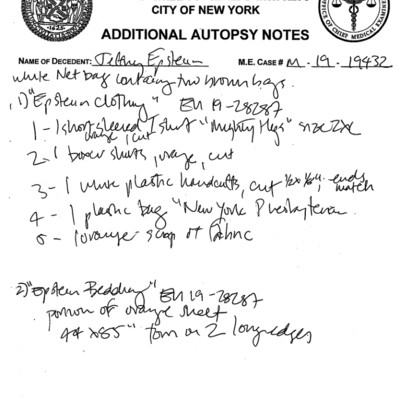 CITY OF NEW YORK
ADDITIONAL AUTOPSY NOTES
NAME OF DECEDENT: Jeffrey Epstein M.E. CASE # M-19-19432
white Net bag containing two brown bags.
1) "Epstein Clothing" EU 19-28287
1 - 1 short sleeved T shirt "Mighty Hegs" size 2XL
orange, cut
2 - 1 boxer shorts, orange, cut
3 - 1 white plastic handcuffs, cut ends match
4 - 1 plastic bag "New York Presbyterian
5 - 1 orange scrap of fabric
2) "Epstein Bedding" EU 19-28287
portion of orange sheet
44 x 85" torn on 2 long edges